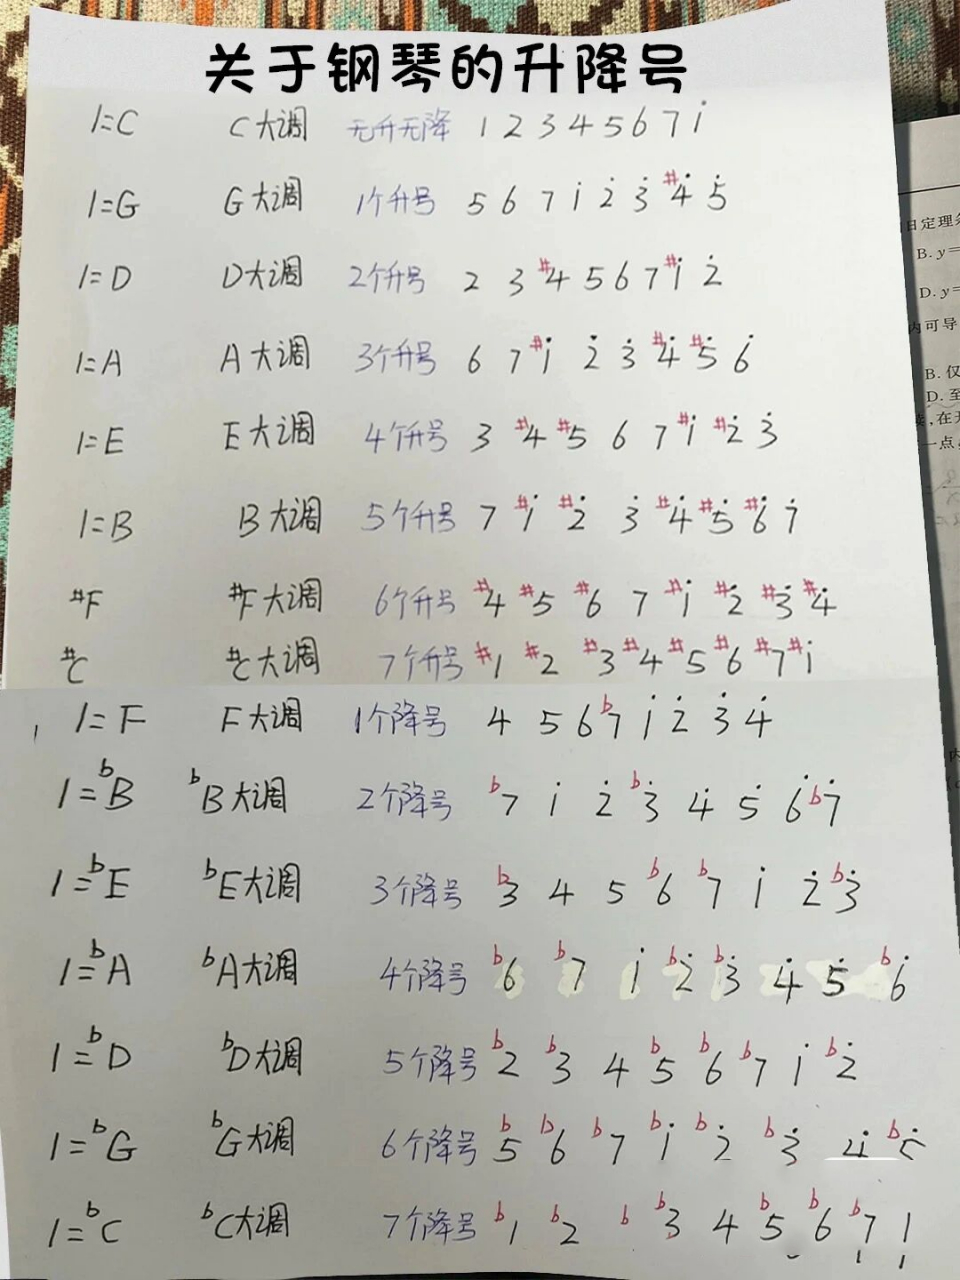 关于钢琴的升降号
1=C C大调 无升无降 1 2 3 4 5 6 7 i̇
1=G G大调 1个升号 5 6 7 1̇ 2̇ 3̇ #4̇ 5̇
1=D D大调 2个升号 2 3 #4 5 6 7 #1̇ 2̇
1=A A大调 3个升号 6 7 #1̇ 2̇ 3̇ #4̇ #5̇ 6̇
1=E E大调 4个升号 3 #4 #5 6 7 #1̇ #2̇ 3̇
1=B B大调 5个升号 7 #1̇ #2̇ 3̇ #4̇ #5̇ #6̇ 7̇
#F #F大调 6个升号 #4 #5 #6 7 #1̇ #2̇ #3̇ #4̇
#C #C大调 7个升号 #1 #2 #3 #4 #5 #6 #7 #1̇
1=F F大调 1个降号 4 5 6 b7 1̇ 2̇ 3̇ 4̇
1=bB bB大调 2个降号 b7 1̇ 2̇ b3̇ 4̇ 5̇ 6̇ b7̇
1=bE bE大调 3个降号 b3 4 5 b6 b7 1̇ 2̇ b3̇
1=bA bA大调 4个降号 b6 b7 1̇ b2̇ b3̇ 4̇ 5̇ b6̇
1=bD bD大调 5个降号 b2 b3 4 b5 b6 b7 1̇ b2̇
1=bG bG大调 6个降号 b5 b6 b7 b1̇ b2̇ b3̇ 4̇ b5̇
1=bC bC大调 7个降号 b1 b2 b b3 4 b5 b6 b7 1
日定理
B. y=
D. y=
内可导
B. 仅
D. 至
一点